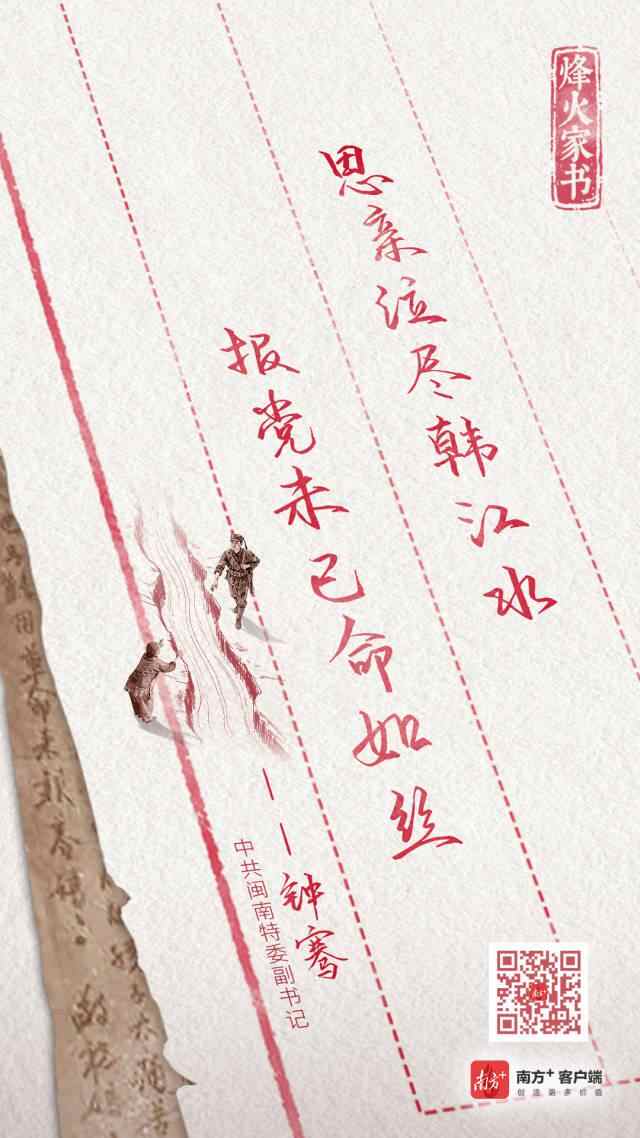 烽火家书
思亲泣尽韩江水
报党未已命如丝
——钟骞
中共闽南特委副书记
南方+
南方+ 客户端
创造更多价值